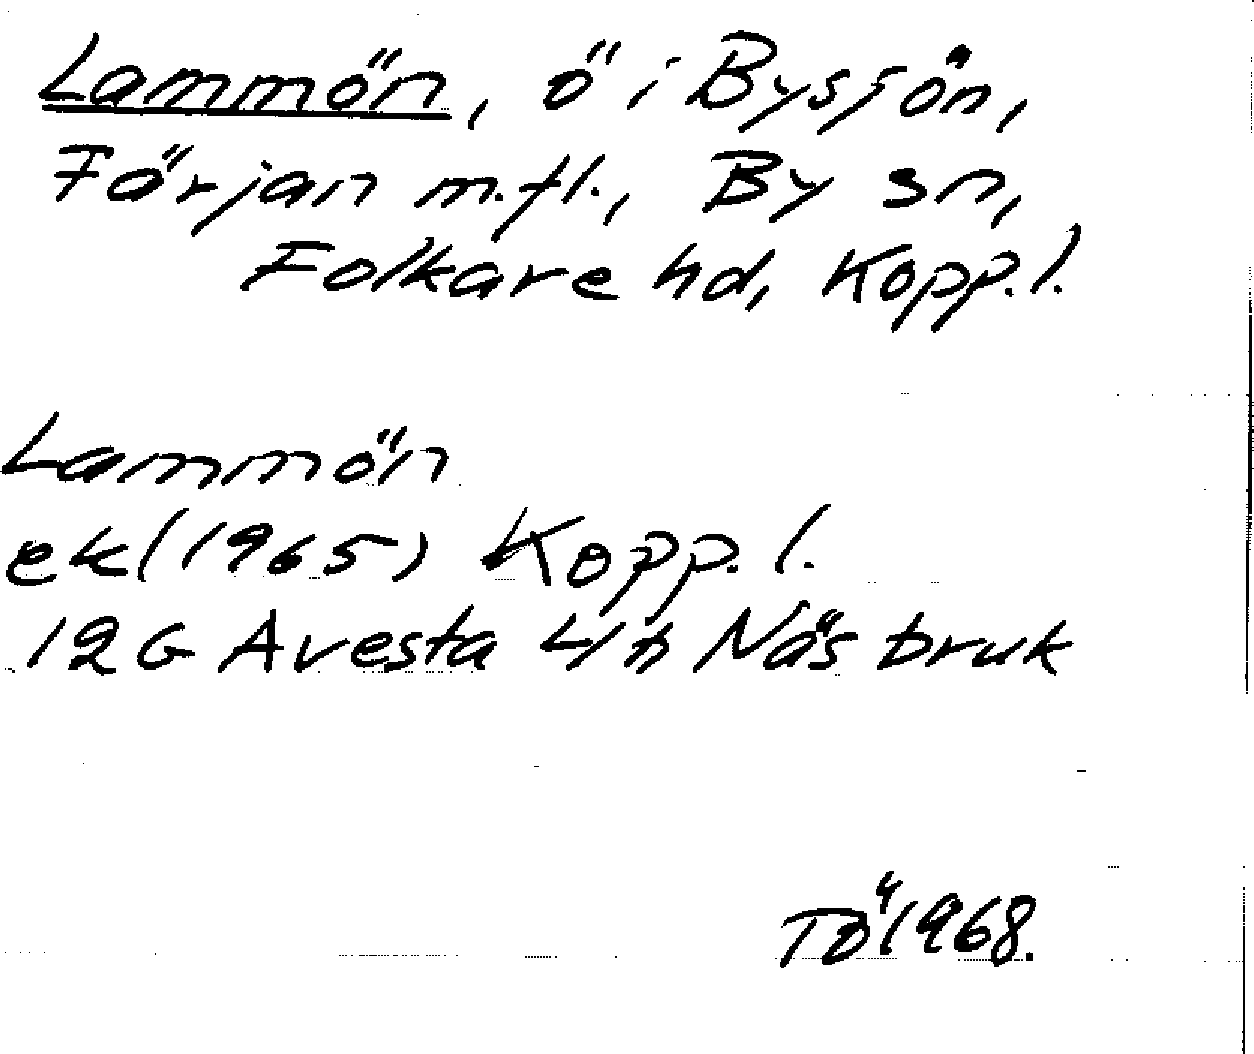 Lammön, ö i Bysjön,
Färjan m.fl., By sn,
Folkare hd, Kopp.l.
Lammön
ek (1965) Kopp. l.
12 G Avesta 4h Näs bruk
TÖ 1968.